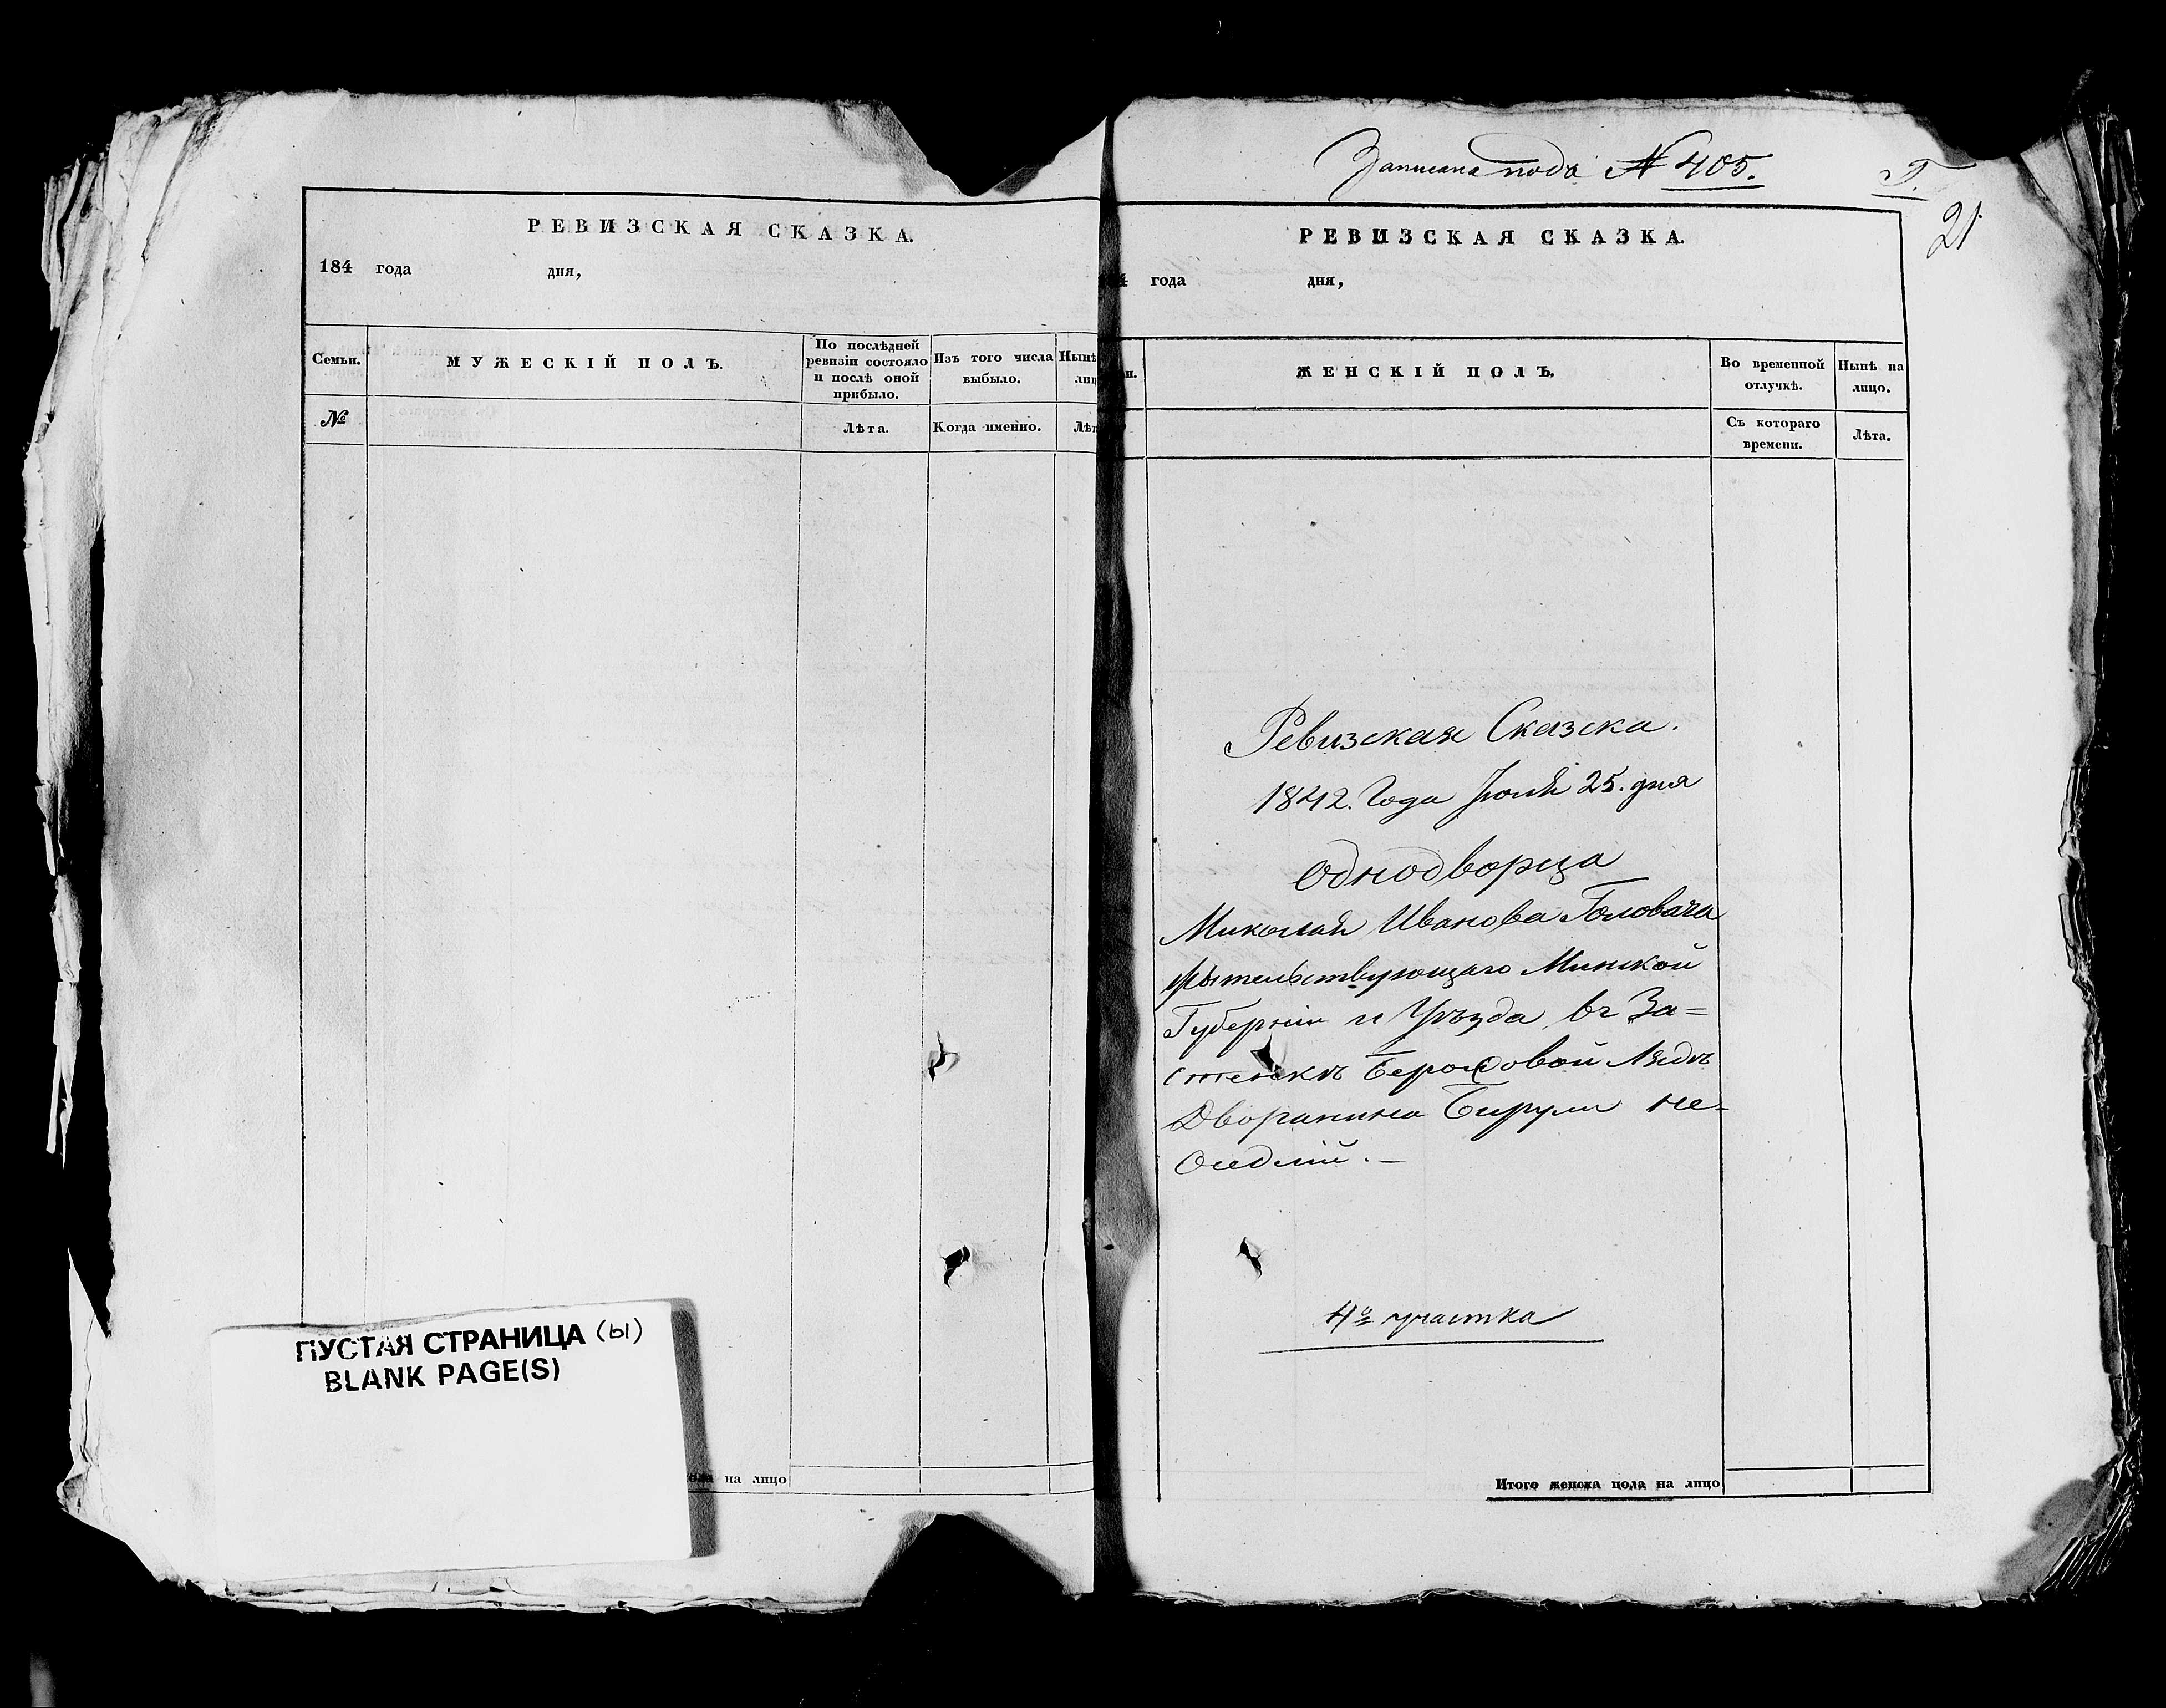 РЕВИЗСКАЯ СКАЗКА.
184 года дня,
Семьи.
МУЖЕСКІЙ ПОЛЪ.
По послѣдней
ревизіи состояло
и послѣ оной
прибыло.
Изъ того числа
выбыло.
Нынѣ
лиц
№
Лѣта.
Когда именно.
Лѣт
ПУСТАЯ СТРАНИЦА (ы)
BLANK PAGE(S)
на лицо
Записана подъ № 405.
21
РЕВИЗСКАЯ СКАЗКА.
4 года дня,
ЖЕНСКІЙ ПОЛЪ.
Во временной
отлучкѣ.
Нынѣ на
лицо.
Съ котораго
времени.
Лѣта.
Ревизская Сказка.
1842. Года Іюля 25. дня
Однодворца
Миколая Иванова Головача
жытельствующаго Минской
Губерніи и Уѣзда въ За=
стенкѣ Лядѣ
Дворянина Бирули не-
Оседлый. —
4го участка
Итого женска пола на лицо